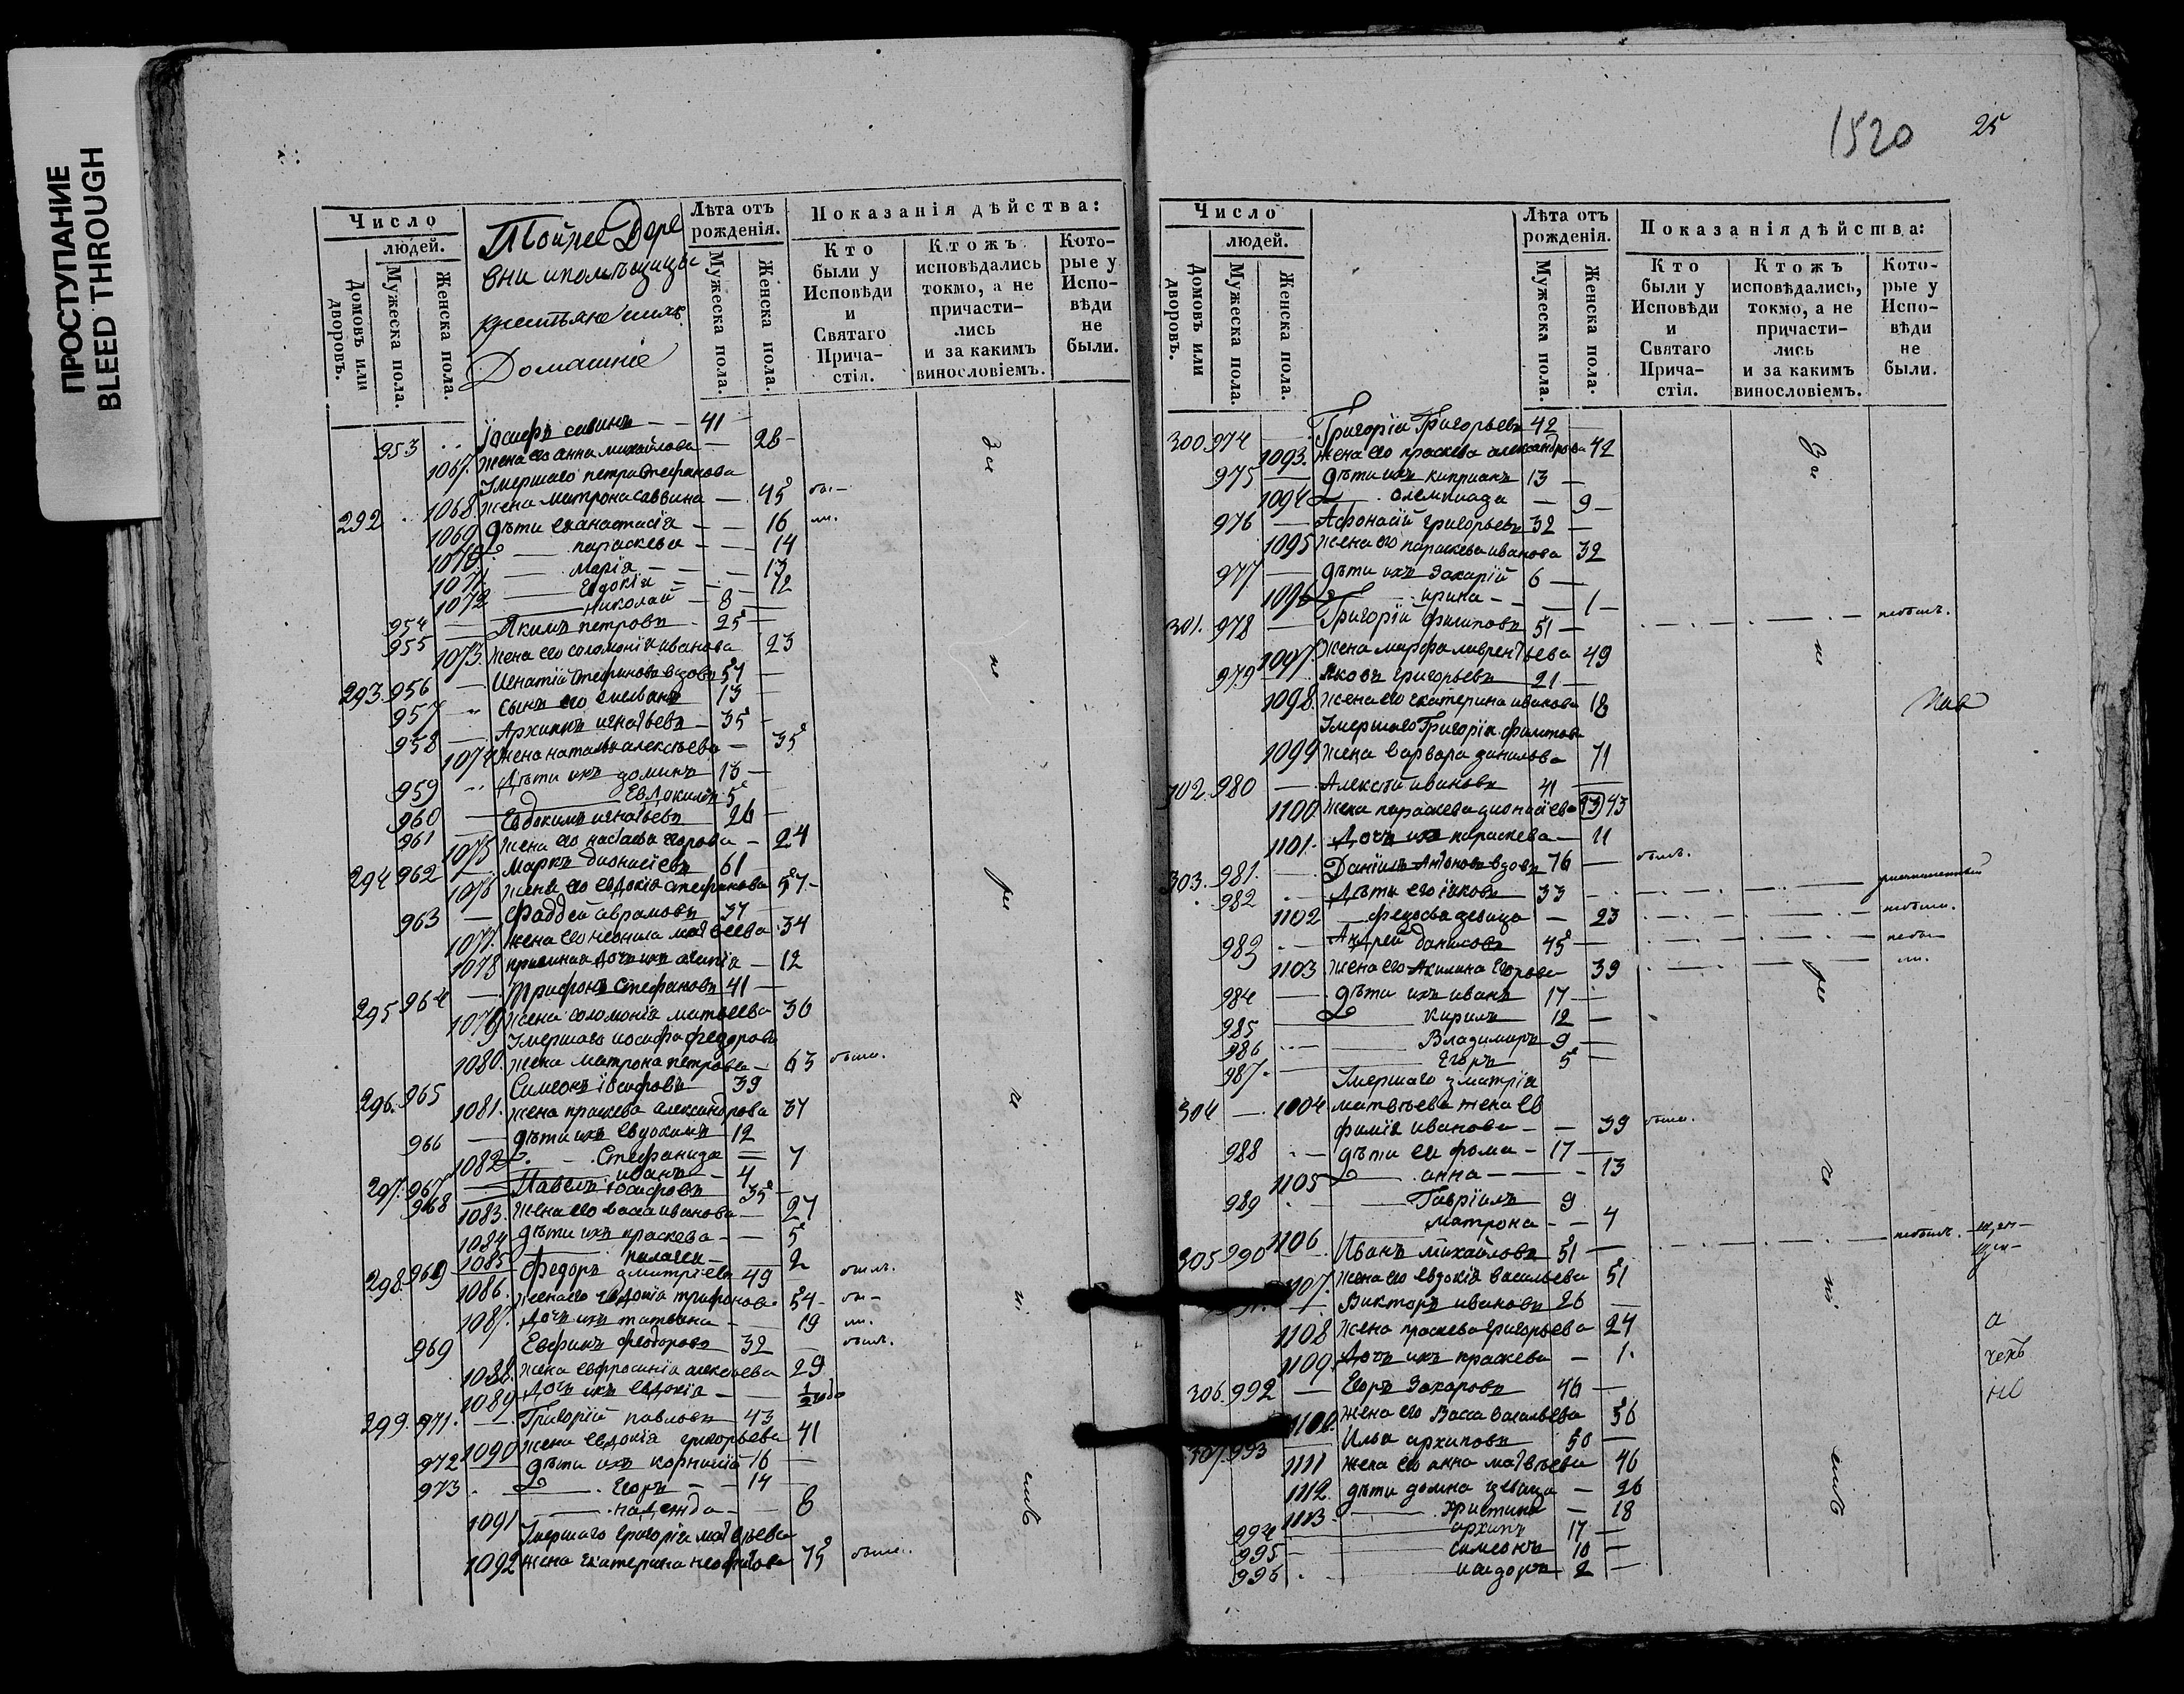 ПРОСТУПАНИЕ
BLEED THROUGH
Число
людей.
Домовъ или дворовъ.
Мужеска пола.
Женска пола.
Тойже Дере
вни
крестьяне
Домашніе
Лѣта отъ рожденія.
Мужеска пола.
Женска пола.
Показанія дѣйства:
Кто были у Исповѣди и Святаго Причастія.
Ктожъ исповѣдались токмо, а не причастились и за какимъ винословіемъ.
Которые у Исповѣди не были.
953 Іосифъ савинъ 41
1067 Жена его анна михайлова 28
Умершаго петра Стефанова
292 1068 Жена матрона саввина 45
1069 дѣти ея анастасія 16
1070 параскева 14
1071 марія 13
1072 Евдокія 12
954 николай 8
955 Якимъ петровъ 25
1073 Жена его соломонія иванова 23
293 956 Игнатій Стефановъ вдовъ 57
957 сынъ его 13
958 Архипъ игнатьевъ 35
1074 Жена наталья алексѣева 35
959 Дѣти ихъ 13
960 Евдокимъ 5
961 Евдокимъ игнатьевъ 26
1075 Жена его настасья егорова 24
294 962 Маркъ дионисіевъ 61
1076 Жена его евдокія стефанова 57
963 Фаддей аврамовъ 37
1077 жена его неонила матвеева 34
1078 дочь ихъ 12
295 964 Трифонъ Стефановъ 41
1079 Жена соломонія матвеева 36
Умершаго иосифа федорова
1080 Жена матрона петрова 63 была.
296 965 Симеонъ іосифовъ 39
1081 Жена праскева александрова 37
966 дѣти ихъ евдокимъ 12
1082 Стефанида 7
967 иванъ 4
297 968 Павелъ іосифовъ 35
1083 Жена его васса иванова 27
1084 дѣти ихъ праскева 5
1085 пелагея 2
298 969 Федоръ дмитріевъ 49 былъ.
1086 Жена его евдокія трифонова 54
1087 Дочь ихъ татьяна 19
969 федорова 32 былъ.
1088 Жена евфросинія алексѣева 29
1089 Дочь ихъ евдокія 1/2 года
299 971 Григорій павловъ 43
1090 Жена евдокія григорьева 41
972 дѣти ихъ корнилій 16
973 Егоръ 14
1091 надежда 8
Умершаго григорія матвѣева
1092 Жена екатерина 75 была.
1520
25
Число
людей.
Домовъ или дворовъ.
Мужеска пола.
Женска пола.
Лѣта отъ рожденія.
Мужеска пола.
Женска пола.
Показанія дѣйства:
Кто были у Исповѣди и Святаго Причастія.
Ктожъ исповѣдались, токмо, а не причастились и за какимъ винословіемъ.
Которые у Исповѣди не были.
300 974 Григорій Григорьевъ 42
1093 Жена его праскева александрова 42
975 дѣти ихъ киприанъ 13
1094 олемпиада 9
976 Афонасій григорьевъ 32
1095 Жена его параскева иванова 32
977 дѣти ихъ Захарій 6
1096 ирина 1
301 978 Григорій филиповъ 51 небылъ.
1097 Жена марфа лаврентьева 49
979 Яковъ григорьевъ 21
1098 Жена его екатерина иванова 18
Умершаго Григорія филипова
1099 Жена варвара данилова 71
302 980 Алексѣй ивановъ 41
1100 Жена параскева дионисіева 43
1101 Дочь ихъ параскева 11
303 981 Даніилъ Антоновъ вдовъ 76 былъ.
982 Дѣти его іаковъ 33
1102 федосья девица 23 небыла.
983 Андрей даниловъ 45
1103 Жена его Акилина Егорова 39
984 дѣти ихъ иванъ 17
985 кирилъ 12
986 Владимиръ 9
987 Егоръ 5
Умершаго дмитрія
304 1004 матвѣева жена ев
фимія иванова 39 была.
988 дѣти ея фома 17
1105 анна 13
989 Гавріилъ 9
1106 матрона 4
305 990 Иванъ михайловъ 51 небылъ.
1107 Жена его евдокія васильева 51
Викторъ ивановъ 26
1108 Жена праскева григорьева 24
1109 Дочь ихъ праскева 1
306 992 Егоръ Захаровъ 46
1110 Жена его Васса васильева 56
307 993 Илья архиповъ 50
1111 Жена его анна матвѣева 46
1112 дѣти домна девица 26
1113 христина 18
994 архипъ 17
995 симеонъ 10
996 исидоръ 2